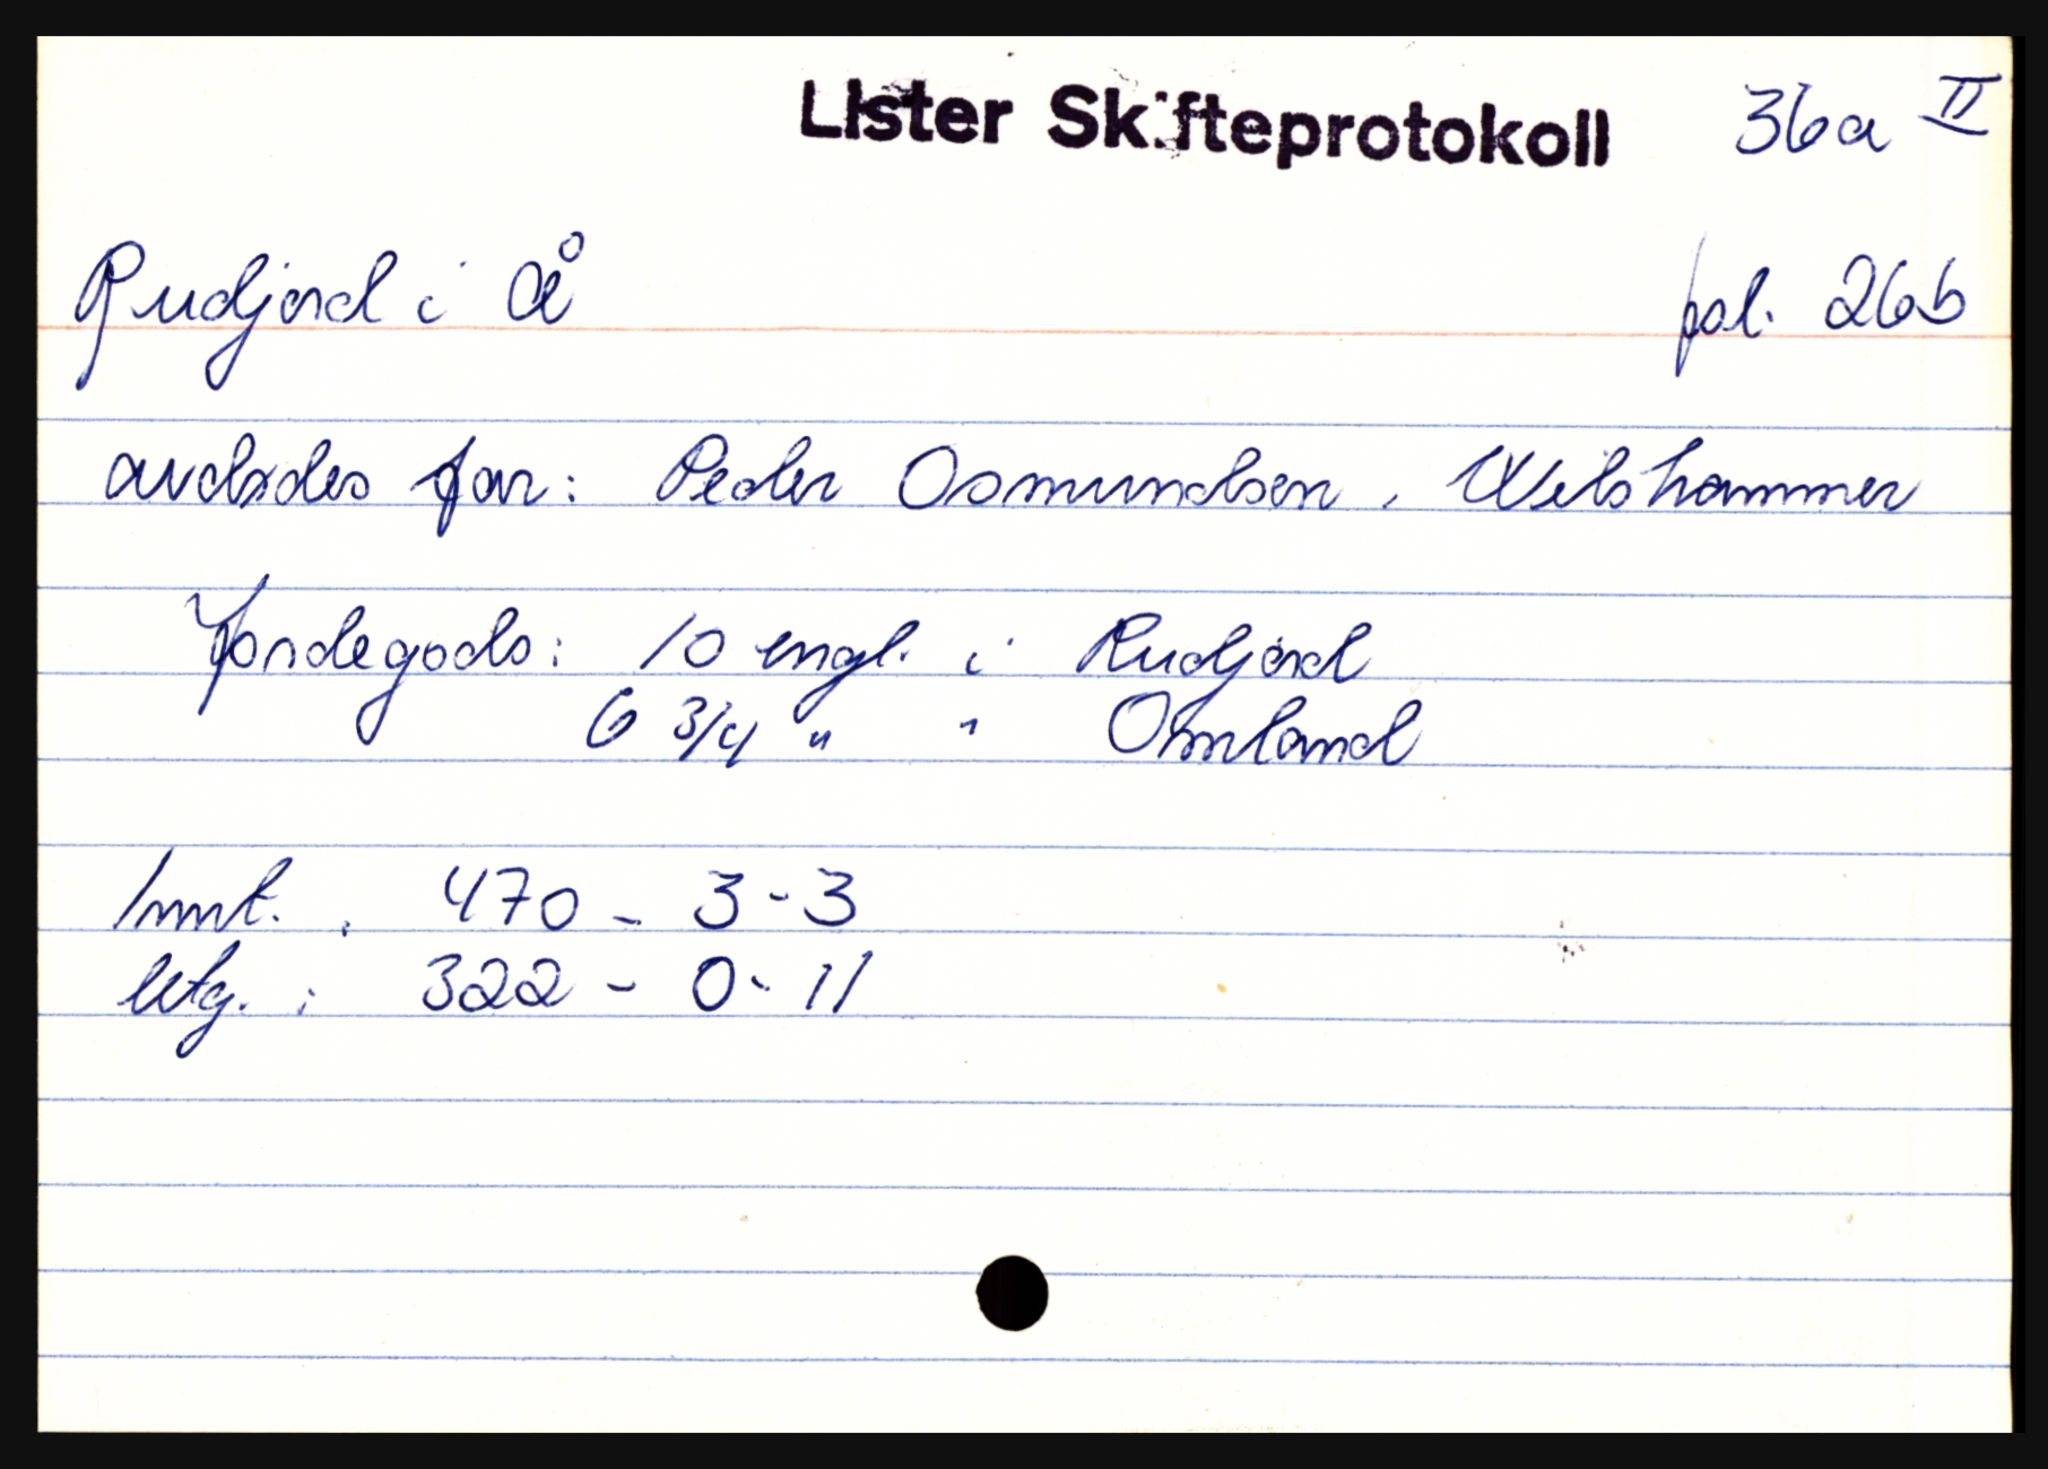 Lister Skifteprotokoll 36a II
Rudjord i Å fol. 26b
avdødes far: Peder Osmundsen, Welshammer
Jordegods: 10 engl. i Rudjord
6 3/4 " " Omland
Innt. : 470 - 3 - 3
Utg. : 322 - 0 - 11